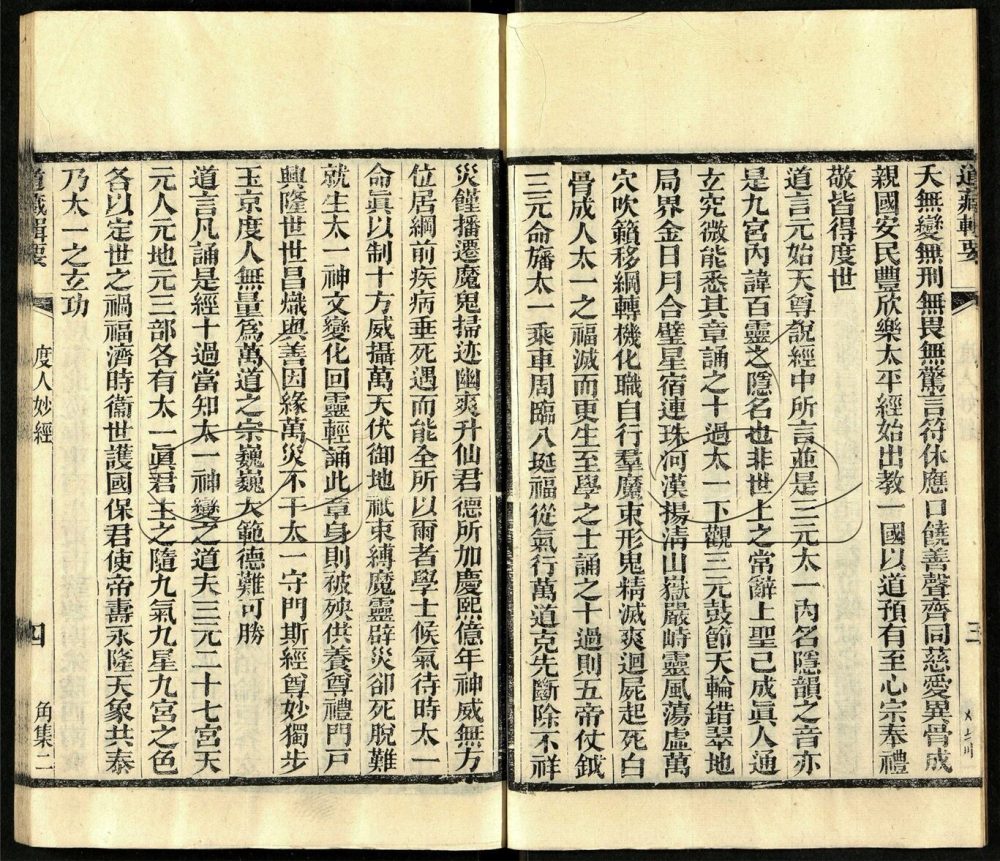 道藏輯要
三
天無變無刑無畏無驚言符休應口饒善聲齊同慈愛異骨成
親國安民豐欣樂太平經始出教一國以道預有至心宗奉禮
敬皆得度世
道言元始天尊說經中所言並是三元太一內名隱韻之音亦
是九宮內諱百靈之隱名也非世上之常辭上聖已成眞人通
玄究微能悉其章誦之十過太一下觀三元鼓節天輪錯翠地
局界金日月合璧星宿連珠河漢揚清山嶽嚴峙靈風蕩虛萬
穴吹籟移綱轉機化職自行羣魔束形鬼精滅爽迴屍起死白
骨成人太一之福滅而更生至學之士誦之十過則五帝仗鉞
三元命旛太一乘車周臨八埏福從氣行萬道克先斷除不祥
災饉播遷魔鬼掃迹幽爽升仙君德所加慶熙億年神威無方
位居綱前疾病垂死遇而能全所以爾者學士候氣待時太一
命眞以制十方威攝萬天伏御地祇束縛魔靈辟災卻死脫難
就生太一神文變化回靈輕誦此章身則被殃供養尊禮門戸
興隆世世昌熾與善因緣萬災不干太一守門斯經尊妙獨步
玉京度人無量爲萬道之宗巍巍大範德難可勝
道言凡誦是經十過當知太一神變之道夫三元二十七宮天
元人元地元三部各有太一眞君主之隨九氣九星九宮之色
各以定世之禍福濟時衞世護國保君使帝壽永隆天象共泰
乃太一之玄功
道藏輯要
度人妙經
四
角集二